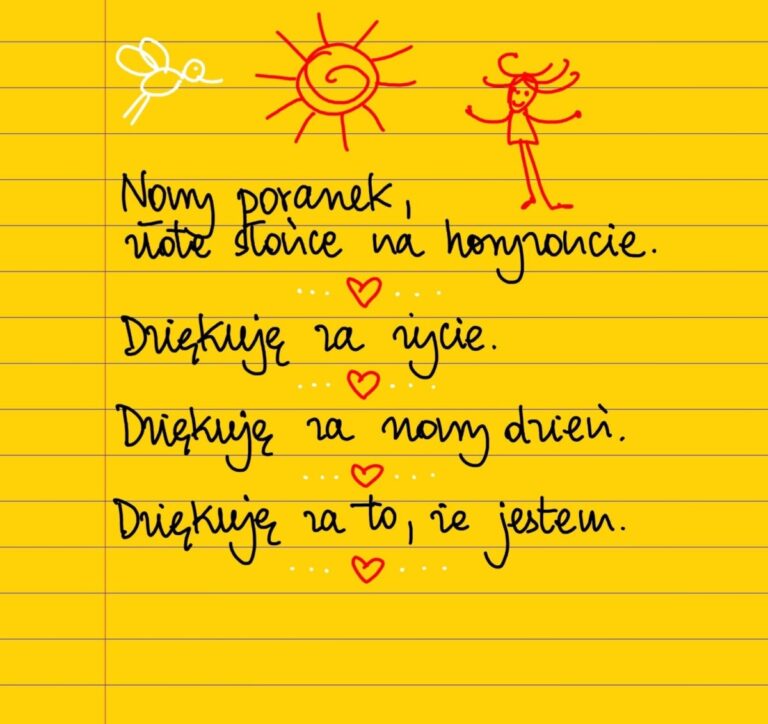 Nowy poranek,
złote słońce na horyzoncie.
Dziękuję za życie.
Dziękuję za nowy dzień.
Dziękuję za to, że jestem.